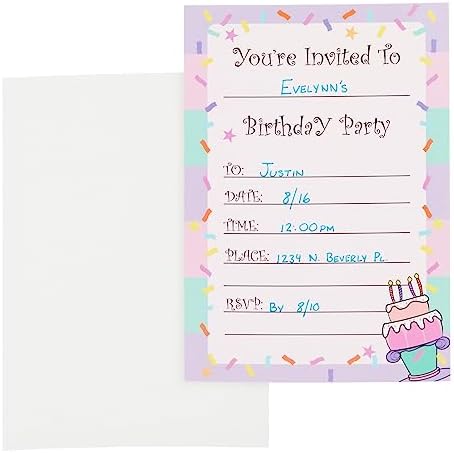 You're Invited To
Evelynn's
Birthday Party
To: Justin
Date: 8/16
Time: 12:00pm
Place: 1234 N. Beverly Pl.
RSVP: By 8/10